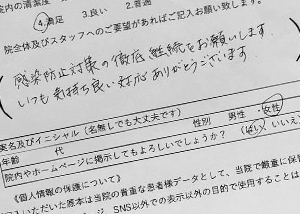 院内の清潔度
4.満足 3.良い 2.普通
院全体及びスタッフへのご要望があればご記入お願い致します。
感染防止対策の徹底、継続をお願いします
いつも気持ち良い対応ありがとうございます
実名及びイニシャル(名無しでも大丈夫です) 性別 男性・女性
年齢 代
院内やホームページに掲示してもよろしいでしょうか? (はい)いいえ
《個人情報の保護について》
いただいた原本は当院の貴重な患者様データとして、当院で厳重に保
SNS以外での表示以外の目的で使用することは